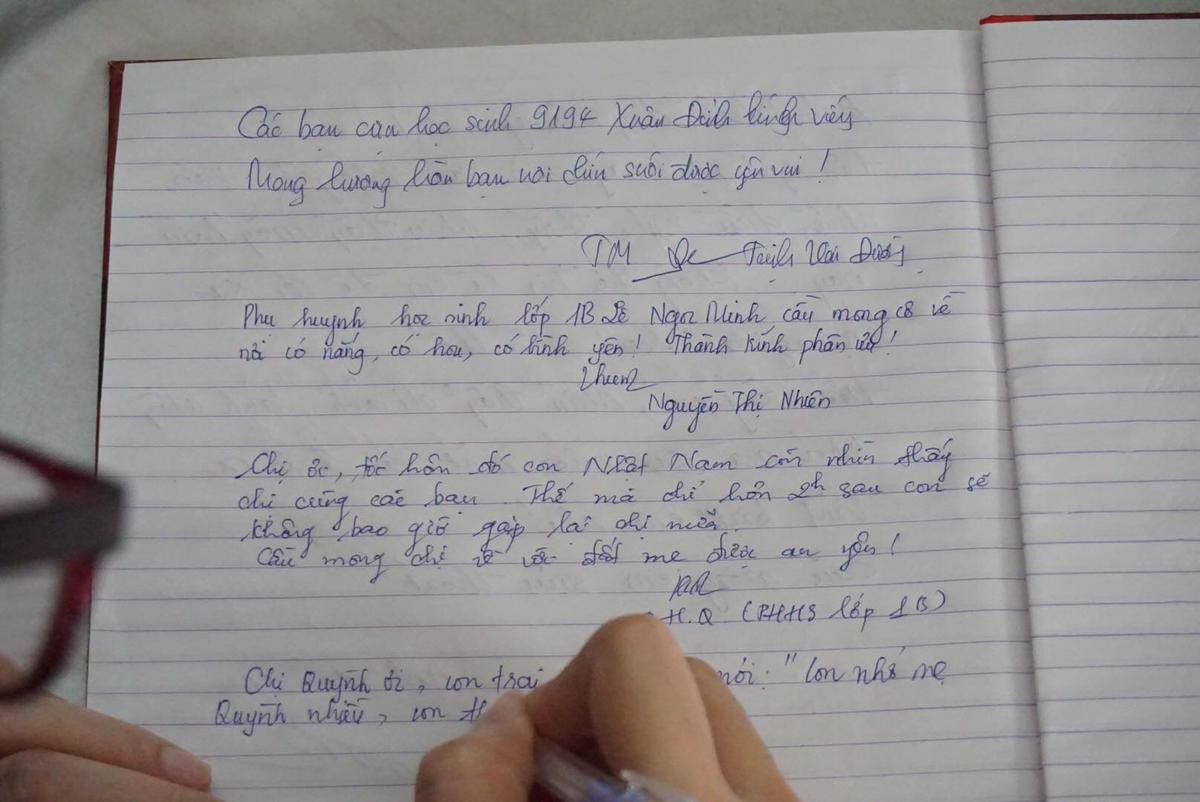 Các bạn cựu học sinh 9194 Xuân Đỉnh kính viếng
Mong hương hồn bạn nơi chín suối được yên vui!
TM
Phụ huynh học sinh lớp 1B Lê Ngọc Minh cầu mong cô về
nơi có nắng, có hoa, có bình yên! Thành kính phân ưu!
Nguyễn Thị Nhiên
Chị ơi, tốc hôn đó con Nhật Nam còn nhìn thấy
chị cùng các bạn. Thế mà chỉ hơn 2h sau con sẽ
không bao giờ gặp lại chị nữa.
Cầu mong chị về với đất mẹ được an yên!
H.Q. (PHHS lớp 1B)
Chị Quỳnh ơi, con trai nói: "Con nhớ mẹ
Quỳnh nhiều, con